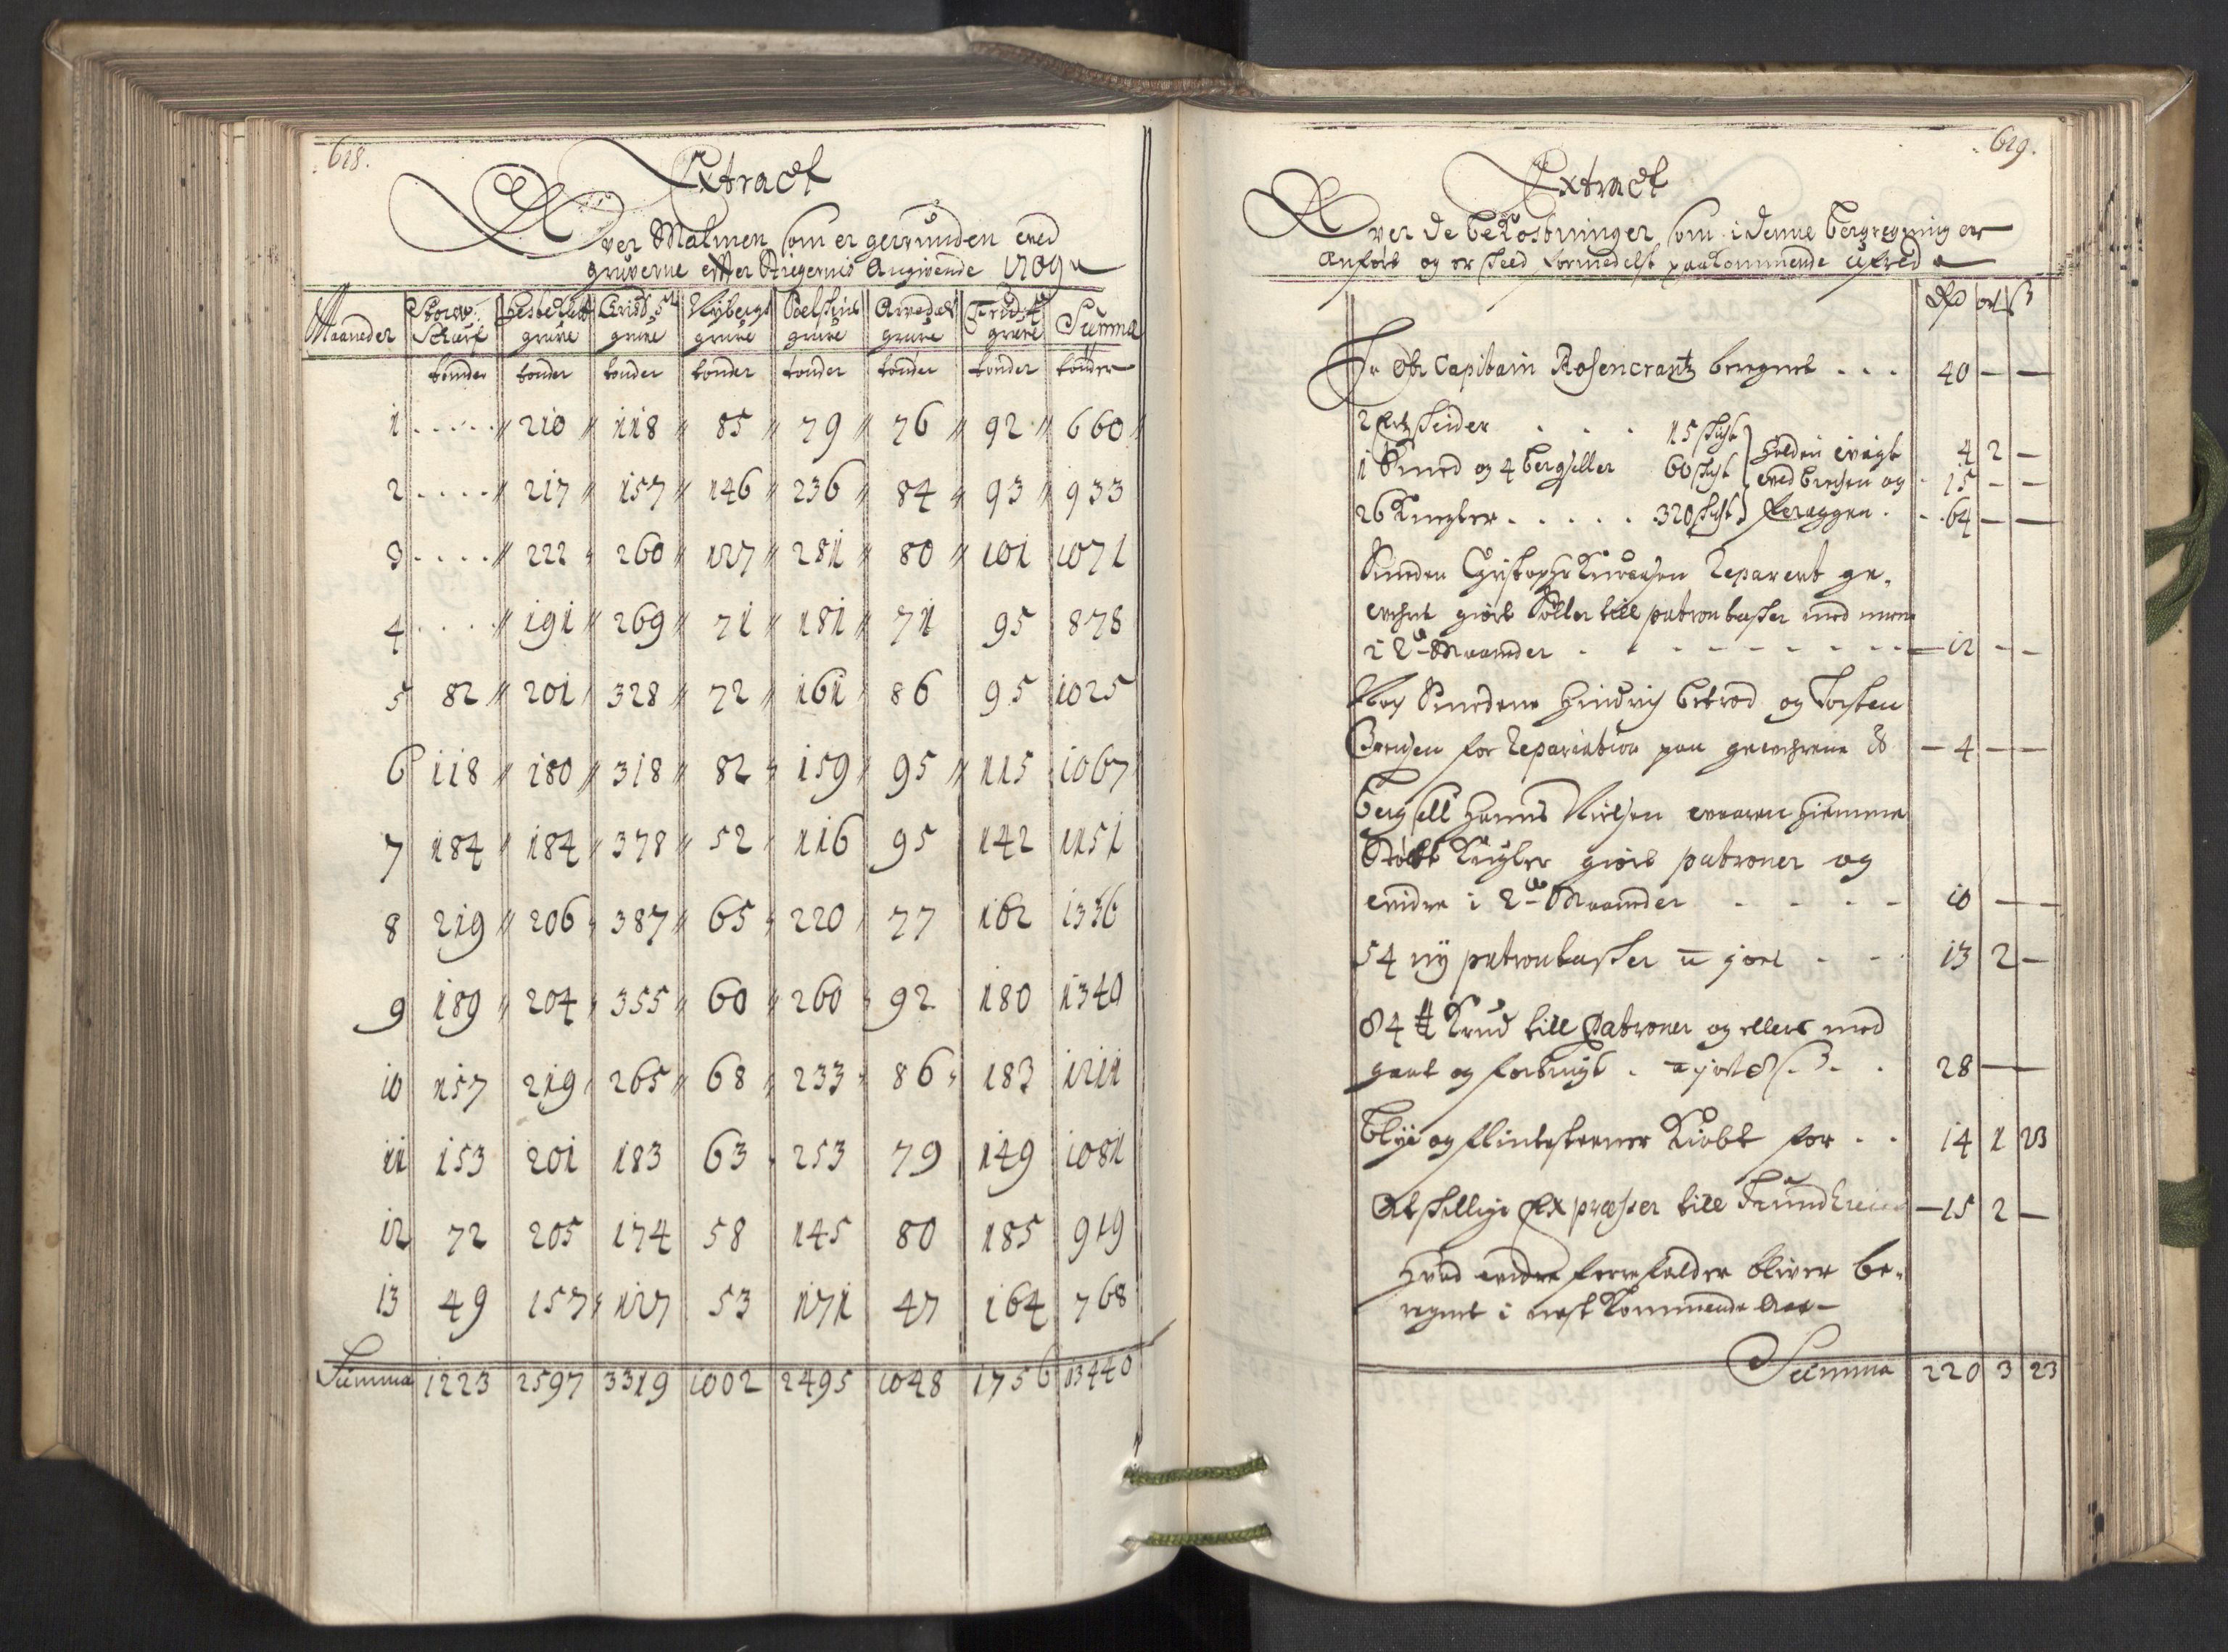 628.
Extract
Over Malmen som er gewunden wed
gruverne effter Stiegernis Angivende 1709
Maaneder Storw: Schurf gruve gruve Nyberg gruve gruve gruve Fridr: gruve Summa
tonder tonder tonder tonder tonder tonder tonder tonder
1 ..... 210 118 85 79 76 92 660
2 .... 217 157 146 236 84 93 933
3 .... 222 260 127 281 80 101 1071
4 .... 191 269 71 181 71 95 878
5 82 201 328 72 161 86 95 1025
6 118 180 318 82 159 95 115 1067
7 184 184 378 52 116 95 142 1151
8 219 206 387 65 220 77 162 1336
9 189 204 355 60 260 92 180 1340
10 157 219 265 68 233 86 183 1211
11 153 201 183 63 253 79 149 1081
12 72 205 174 58 145 80 185 919
13 49 157 127 53 171 47 164 768
Summa 1223 2597 3319 1002 2495 1048 1756 13440
629.
Extract
Over de bekostninger som i denne bergregning er
Anfört og er skeed formedelst paakommende Ufred
Rd ort ß
Hr Obr Capitain Rosencrantz beregnet ... 40 — —
2 skeider ... 15 skift 4 2 —
1 Smed og 4 bergseller 60 skift holden wagt wed og 15 — —
26 Knegter ..... 320 skift 64 — —
Smeden Christopher Reparert ge-
wehret giort till patrontasker med
i 2 Maaneder 12 — —
Noch Smedene Hindrich og Torsten
for Reparation paa gewehrene — 4 — —
bergsell Hanns Nielsen hiemme
Stöbt Kugler giort patroner og
widre i 2 Maaneder 10 — —
54 ny patrontasker a 1 ort 13 2 —
84 ℔ Krud till Patroner og ellers med
gaat og forbrugt . a 1 ort 8 ß . 28 — —
blye og flintesteener Kiöbt for .. 14 1 23
Atskillige Expresser till Trundhiem — 15 2 —
Hvad widre forefalder bliver be-
regnet i nest Kommende Aar
Summa 220 3 23